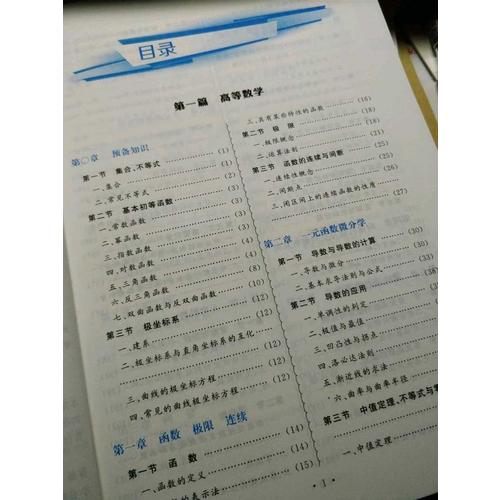 目录
第一篇 高等数学
第〇章 预备知识
第一节 集合、不等式 (1)
一、集合 (1)
二、常见不等式 (2)
第二节 基本初等函数 (3)
一、常数函数 (3)
二、幂函数 (3)
三、指数函数 (3)
四、对数函数 (4)
五、三角函数 (4)
六、反三角函数 (8)
七、双曲函数与反双曲函数 (10)
第三节 极坐标系 (12)
一、建系 (12)
二、极坐标系与直角坐标系的互化
(12)
三、曲线的极坐标方程 (12)
四、常见的曲线极坐标方程 (12)
第一章 函数 极限 连续
第一节 函数 (14)
一、函数的定义 (14)
的表示法 (15)
三、具有某些特性的函数 (16)
第二节 极限 (18)
一、极限概念 (18)
二、运算法则 (21)
第三节 函数的连续与间断 (25)
一、连续性概念 (25)
二、间断点 (26)
三、闭区间上的连续函数的性质 (27)
第二章 一元函数微分学
第一节 导数与导数的计算 (30)
一、导数与微分 (30)
二、基本求导法则与公式 (33)
第二节 导数的应用 (38
一、单调性的判定
二、极值与最值
三、凹凸性与拐点
四、洛必达法则
五、渐近线的求法
六、曲率与曲率半径
第三节 中值定理、不等式与零
一、中值定理
· 1 ·